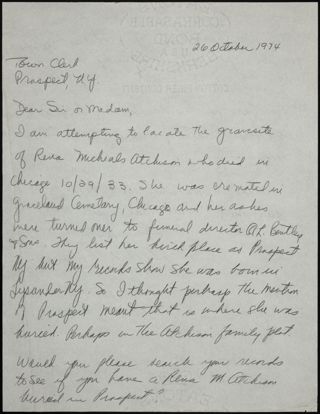 26 October 1974
Town Clerk
Prospect, NY
Dear Sir or Madam,
I am attempting to locate the gravesite
of Rena Micheals Atchison who died in
Chicago 10/29/33. She was cremated in
Graceland Cemetary, Chicago and her ashes
were turned over to funeral director Bentley
& Sons. They list her burial place as Prospect
NY but my records show she was born in
so I thought perhaps the mention
of Prospect meant that is where she was
buried. Perhaps in the Atchison family plot
Would you please search your records
to see if you have a Rena M Atchison
buried in Prospect?